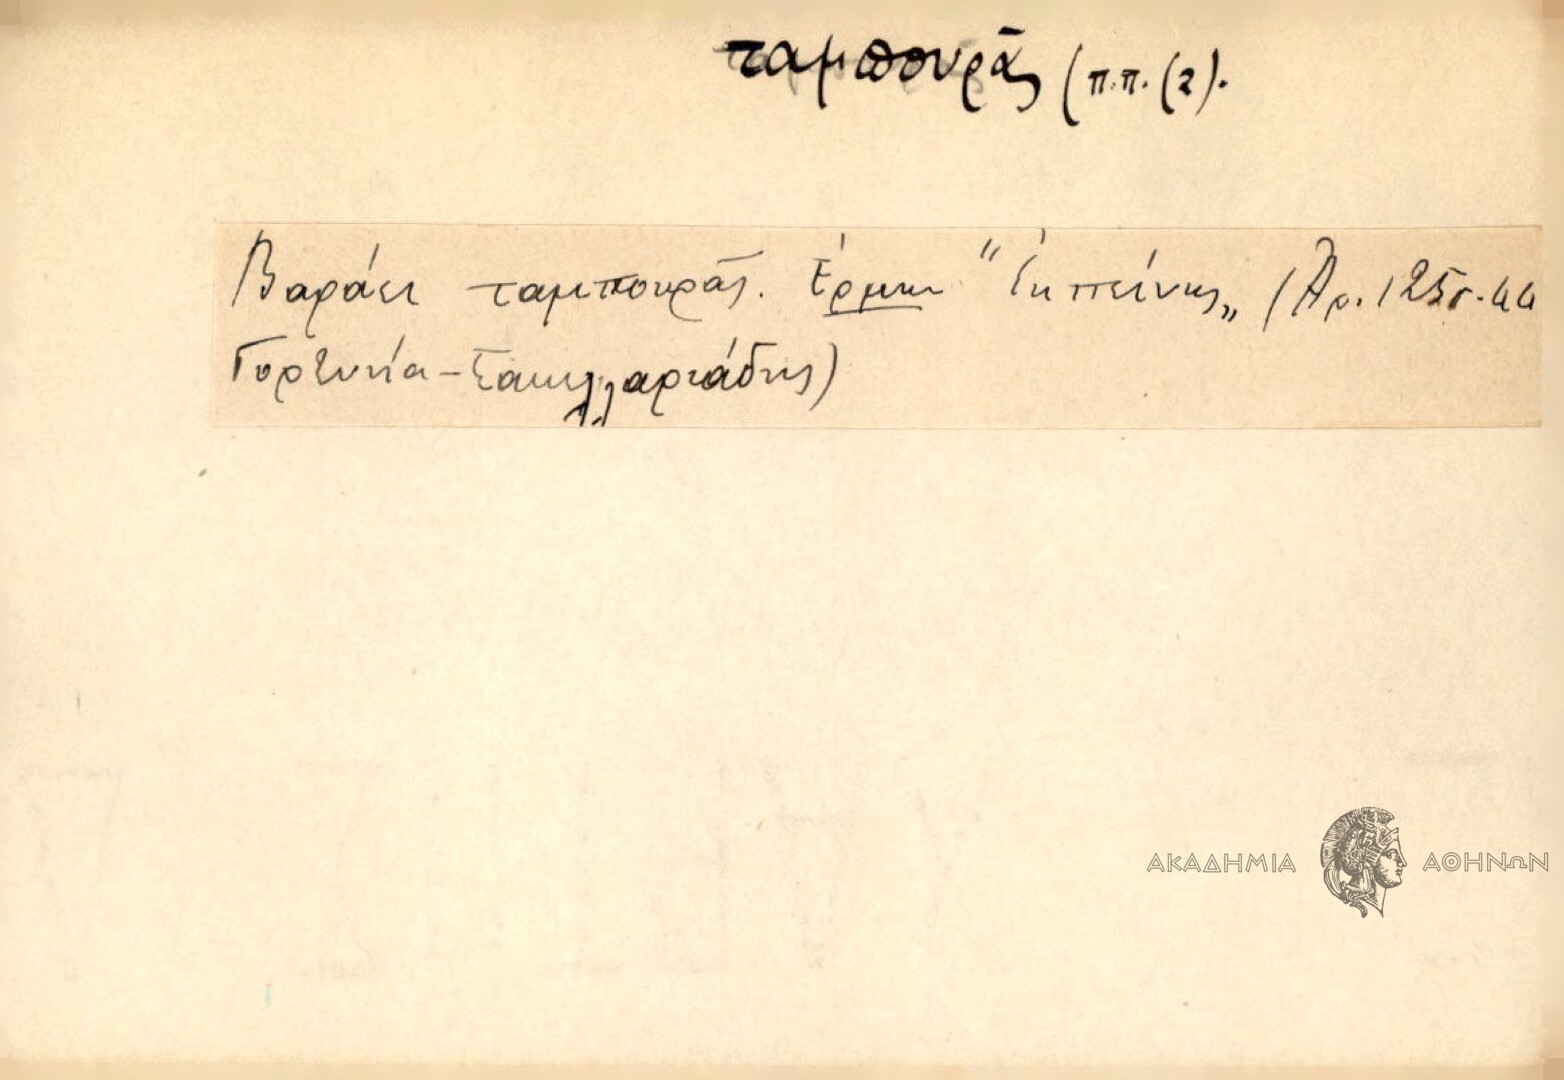 ταμπουρᾶς (π.π. (2).
Βαράει ταμπουρᾶς. Ἑρμ. "Ἐκπείνης„ (Ἀρ. 1251.44
Γορτυνία - Σακελλαριάδης)
ΑΚΑΔΗΜΙΑ ΑΘΗΝΩΝ